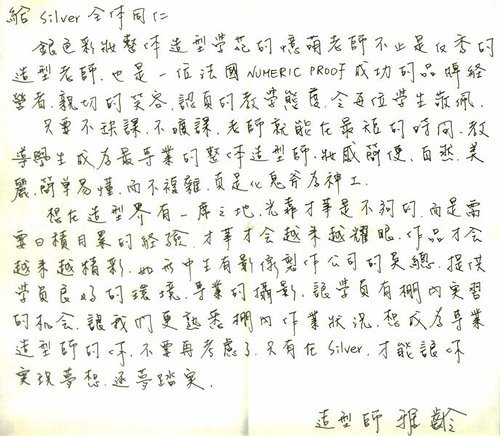 給 Silver 全体同仁
銀色彩妝整体造型學苑的憶萌老師不止是優秀的
造型老師.也是一位法國 NUMERIC PROOF 成功的品牌經
營者.親切的笑容.認真的教學態度.令每位學生敬佩.
只要不蹺課.不曠課.老師就能在最短的時间.教
導學生成為最專業的整体造型師.妝感簡便.自然.美
麗.簡單易懂.而不複雜.真是化息斧為神工.
想在造型界有一席之地.光靠才華是不夠的.而是需
要日積月累的經驗.才華才会越來越耀眼.作品才会
越來越精彩.如市中生有影像製作公司的吳總.提供
學員良好的環境.專業的攝影.讓學員有棚內實習
的机会.讓我們更熟悉棚內作業狀況.想成為專業
造型師的你.不要再考慮了.只有在 Silver.才能讓你
實現夢想.逐夢踏實.
造型師 雅齡